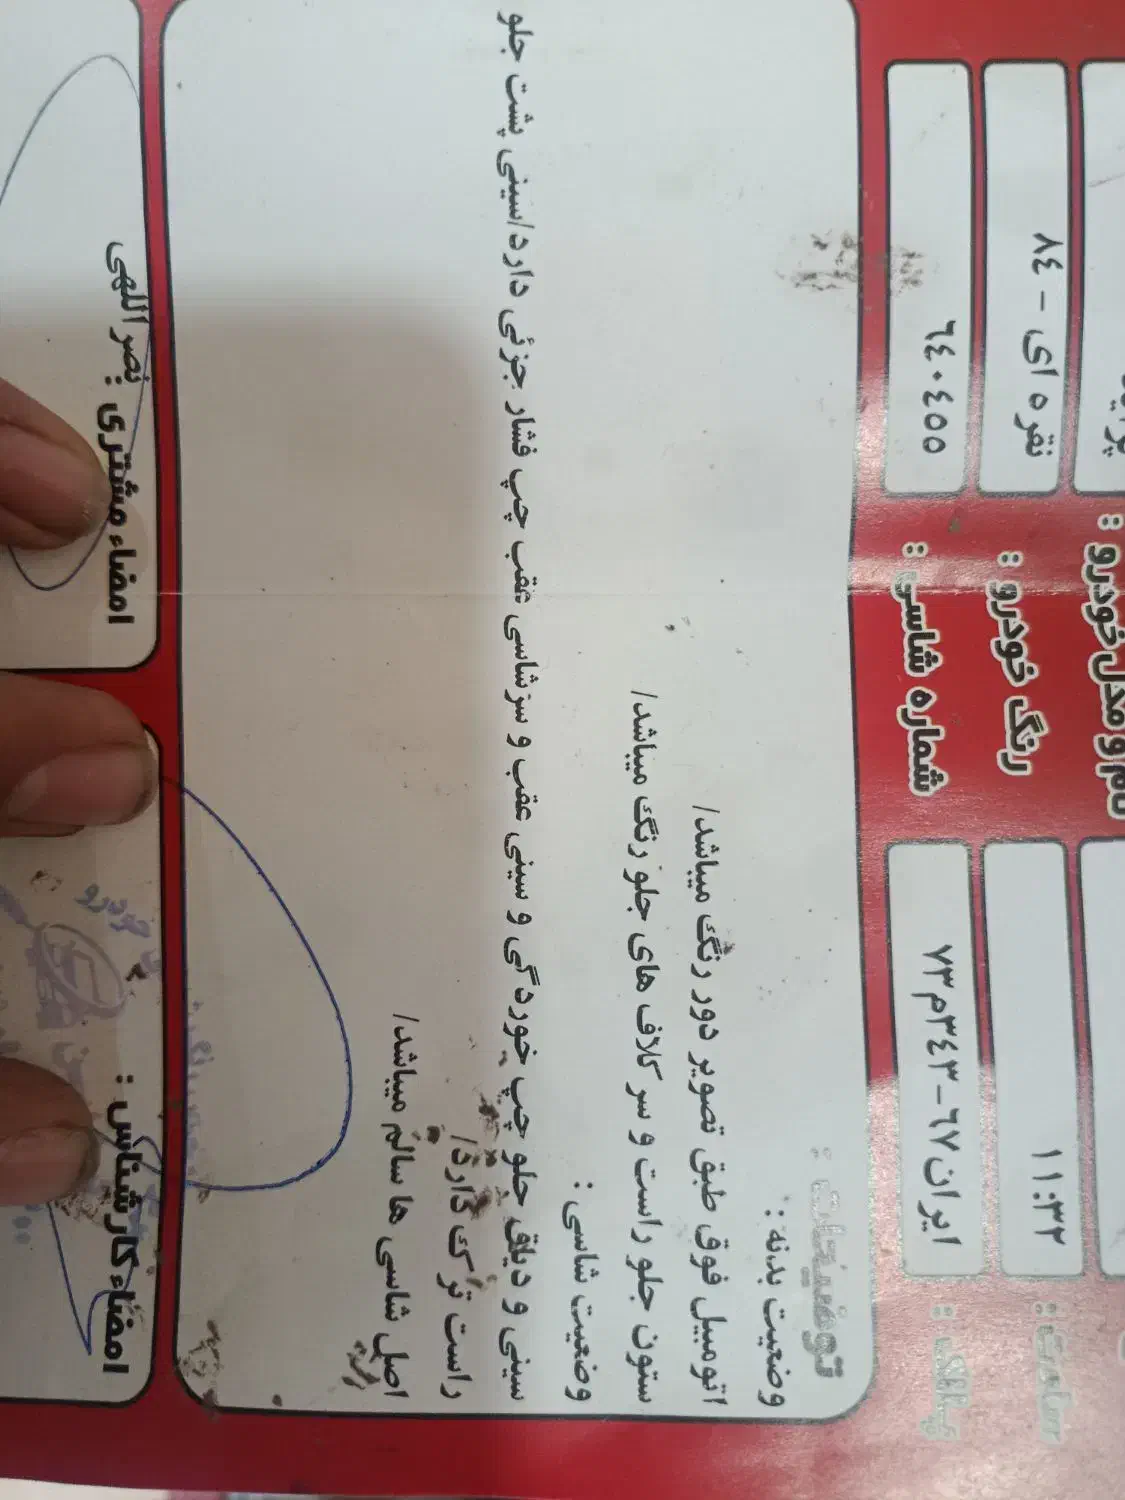 نام و مدل خودرو :
رنگ خودرو : نقره ای - ٨٤
ساعت : ١١:٣٢
شماره شاسی : ٦٤٠٤٥٥
پلاک : ایران٦٧-٣٤٣م٧٣
توضیحات :
وضعیت بدنه :
اتومبیل فوق طبق تصویر دور رنگ میباشد/
ستون جلو راست و سر کلاف های جلو رنگ میباشد/
وضعیت شاسی :
سینی و دیاق جلو چپ خوردگی و سینی عقب و سرشاسی عقب چپ فشار جزئی دارد/سینی پشت جلو
راست ترک دارد/
اصل شاسی ها سالم میباشد/
امضاء کارشناس :
امضاء مشتری : نصر اللهی
خودرو